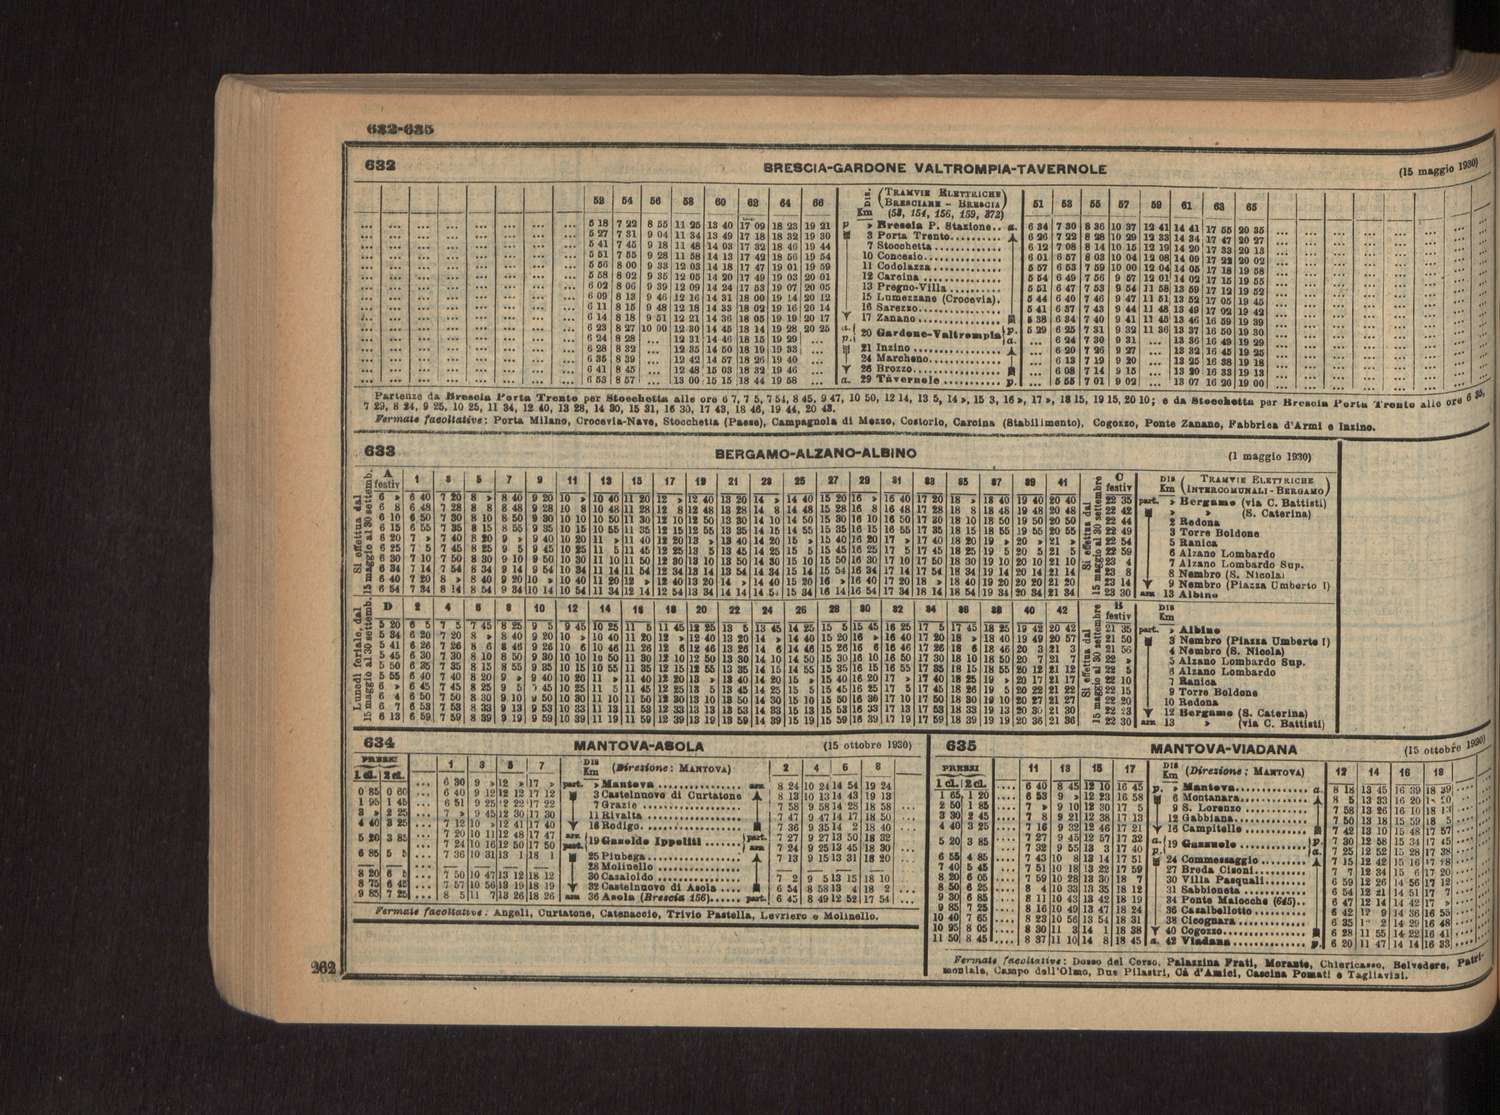 632-635
632 BRESCIA-GARDONE VALTROMPIA-TAVERNOLE (15 maggio 1930)
52 54 56 58 60 62 64 66 DIS. Km (TRAMVIE ELETTRICHE BRESCIANE - BRESCIA) (53, 154, 156, 159, 372) 51 53 55 57 59 61 63 65
5 18 7 22 8 55 11 25 13 40 17 09 18 23 19 21 p » Brescia P. Stazione.. a. 6 34 7 30 8 36 10 37 12 41 14 41 17 55 20 35
5 27 7 31 9 04 11 34 13 49 17 18 18 32 19 30 3 Porta Trento 6 26 7 22 8 28 10 29 12 33 14 34 17 47 20 27
5 41 7 45 9 18 11 48 14 03 17 32 18 46 19 44 7 Stocchetta 6 12 7 08 8 14 10 15 12 19 14 20 17 33 20 13
5 51 7 55 9 28 11 58 14 13 17 42 18 56 19 54 10 Concesio 6 01 6 57 8 03 10 04 12 08 14 09 17 22 20 02
5 56 8 00 9 33 12 03 14 18 17 47 19 01 19 59 11 Codolazza 5 57 6 53 7 59 10 00 12 04 14 05 17 18 19 58
5 58 8 02 9 35 12 05 14 20 17 49 19 03 20 01 12 Carcina 5 54 6 49 7 56 9 57 12 01 14 02 17 15 19 55
6 02 8 06 9 39 12 09 14 24 17 53 19 07 20 05 13 Pregno-Villa 5 51 6 47 7 53 9 54 11 58 13 59 17 12 19 52
6 09 8 13 9 46 12 16 14 31 18 00 19 14 20 12 15 Lumezzane (Crocevia). 5 44 6 40 7 46 9 47 11 51 13 52 17 05 19 45
6 11 8 15 9 48 12 18 14 33 18 02 19 16 20 14 16 Sarezzo 5 41 6 37 7 43 9 44 11 48 13 49 17 02 19 42
6 14 8 18 9 51 12 21 14 36 18 05 19 19 20 17 17 Zanano 5 38 6 34 7 40 9 41 11 45 13 46 16 59 19 39
6 23 8 27 10 00 12 30 14 45 18 14 19 28 20 25 a. 20 Gardone-Valtrompia p. 5 29 6 25 7 31 9 32 11 36 13 37 16 50 19 30
6 24 8 28 ... 12 31 14 46 18 15 19 29 ... p. a. ... 6 24 7 30 9 31 ... 13 36 16 49 19 29
6 28 8 32 ... 12 35 14 50 18 19 19 33 ... 21 Inzino ... 6 20 7 26 9 27 ... 13 32 16 45 19 25
6 35 8 39 ... 12 42 14 57 18 26 19 40 ... 24 Marcheno ... 6 13 7 19 9 20 ... 13 25 16 38 19 18
6 41 8 45 ... 12 48 15 03 18 32 19 46 ... 26 Brozzo ... 6 08 7 14 9 15 ... 13 20 16 33 19 13
6 53 8 57 ... 13 00 15 15 18 44 19 58 ... a. 29 Tavernole p. ... 5 55 7 01 9 02 ... 13 07 16 20 19 00
Partenze da Brescia Porta Trento per Stocchetta alle ore 6 7, 7 5, 7 54, 8 45, 9 47, 10 50, 12 14, 13 5, 14 », 15 3, 16 », 17 », 18 15, 19 15, 20 10; e da Stocchetta per Brescia Porta Trento alle ore 6 35,
7 29, 8 24, 9 25, 10 25, 11 34, 12 40, 13 28, 14 30, 15 31, 16 30, 17 43, 18 46, 19 44, 20 43.
Fermate facoltative: Porta Milano, Crocevia-Nave, Stocchetta (Paese), Campagnola di Mezzo, Costorio, Carcina (Stabilimento), Cogozzo, Ponte Zanano, Fabbrica d'Armi e Inzino.
633 BERGAMO-ALZANO-ALBINO (1 maggio 1930)
Si effettua dal 15 maggio al 30 settemb.
A festiv 1 3 5 7 9 11 13 15 17 19 21 23 25 27 29 31 33 35 37 39 41 C festiv DIS Km (TRAMVIE ELETTRICHE INTERCOMUNALI - BERGAMO)
Si effettua dal 15 maggio al 30 settembre
6 » 6 40 7 20 8 » 8 40 9 20 10 » 10 40 11 20 12 » 12 40 13 20 14 » 14 40 15 20 16 » 16 40 17 20 18 » 18 40 19 40 20 40 22 35 part. » Bergamo (via C. Battisti)
6 8 6 48 7 28 8 8 8 48 9 28 10 8 10 48 11 28 12 8 12 48 13 28 14 8 14 48 15 28 16 8 16 48 17 28 18 8 18 48 19 48 20 48 22 42 » » (S. Caterina)
6 10 6 50 7 30 8 10 8 50 9 30 10 10 10 50 11 30 12 10 12 50 13 30 14 10 14 50 15 30 16 10 16 50 17 30 18 10 18 50 19 50 20 50 22 44 2 Redona
6 15 6 55 7 35 8 15 8 55 9 35 10 15 10 55 11 35 12 15 12 55 13 35 14 15 14 55 15 35 16 15 16 55 17 35 18 15 18 55 19 55 20 55 22 49 3 Torre Boldone
6 20 7 » 7 40 8 20 9 » 9 40 10 20 11 » 11 40 12 20 13 » 13 40 14 20 15 » 15 40 16 20 17 » 17 40 18 20 19 » 20 » 21 » 22 54 5 Ranica
6 25 7 5 7 45 8 25 9 5 9 45 10 25 11 5 11 45 12 25 13 5 13 45 14 25 15 5 15 45 16 25 17 5 17 45 18 25 19 5 20 5 21 5 22 59 6 Alzano Lombardo
6 30 7 10 7 50 8 30 9 10 9 50 10 30 11 10 11 50 12 30 13 10 13 50 14 30 15 10 15 50 16 30 17 10 17 50 18 30 19 10 20 10 21 10 23 4 7 Alzano Lombardo Sup.
6 34 7 14 7 54 8 34 9 14 9 54 10 34 11 14 11 54 12 34 13 14 13 54 14 34 15 14 15 54 16 34 17 14 17 54 18 34 19 14 20 14 21 14 23 8 8 Nembro (S. Nicola)
6 40 7 20 8 » 8 40 9 20 10 » 10 40 11 20 12 » 12 40 13 20 14 » 14 40 15 20 16 » 16 40 17 20 18 » 18 40 19 20 20 20 21 20 23 14 9 Nembro (Piazza Umberto I)
6 54 7 34 8 14 8 54 9 34 10 14 10 54 11 34 12 14 12 54 13 34 14 14 14 54 15 34 16 14 16 54 17 34 18 14 18 54 19 34 20 34 21 34 23 30 arr. 13 Albino
Lunedì feriale, dal 15 maggio al 30 settemb.
D 2 4 6 8 10 12 14 16 18 20 22 24 26 28 30 32 34 36 38 40 42 B festiv DIS Km
Si effettua dal 15 maggio al 30 settembre
5 20 6 5 7 5 7 45 8 25 9 5 9 45 10 25 11 5 11 45 12 25 13 5 13 45 14 25 15 5 15 45 16 25 17 5 17 45 18 25 19 42 20 42 21 35 part. » Albino
5 34 6 20 7 20 8 » 8 40 9 20 10 » 10 40 11 20 12 » 12 40 13 20 14 » 14 40 15 20 16 » 16 40 17 20 18 » 18 40 19 49 20 57 21 50 3 Nembro (Piazza Umberto I)
5 41 6 26 7 26 8 6 8 46 9 26 10 6 10 46 11 26 12 6 12 46 13 26 14 6 14 46 15 26 16 6 16 46 17 26 18 6 18 46 20 3 21 3 21 56 4 Nembro (S. Nicola)
5 45 6 30 7 30 8 10 8 50 9 30 10 10 10 50 11 30 12 10 12 50 13 30 14 10 14 50 15 30 16 10 16 50 17 30 18 10 18 50 20 7 21 7 22 » 5 Alzano Lombardo Sup.
5 50 6 35 7 35 8 15 8 55 9 35 10 15 10 55 11 35 12 15 12 55 13 35 14 15 14 55 15 35 16 15 16 55 17 35 18 15 18 55 20 12 21 12 22 5 6 Alzano Lombardo
5 55 6 40 7 40 8 20 9 » 9 40 10 20 11 » 11 40 12 20 13 » 13 40 14 20 15 » 15 40 16 20 17 » 17 40 18 25 19 » 20 17 21 17 22 10 7 Ranica
6 » 6 45 7 45 8 25 9 5 9 45 10 25 11 5 11 45 12 25 13 5 13 45 14 25 15 5 15 45 16 25 17 5 17 45 18 26 19 5 20 22 21 22 22 15 9 Torre Boldone
6 4 6 50 7 50 8 30 9 10 9 50 10 30 11 10 11 50 12 30 13 10 13 50 14 30 15 10 15 50 16 30 17 10 17 50 18 30 19 10 20 27 21 27 22 20 10 Redona
6 7 6 53 7 53 8 33 9 13 9 53 10 33 11 13 11 53 12 33 13 13 13 53 14 33 15 13 15 53 16 33 17 13 17 53 18 33 19 13 20 30 21 30 22 23 12 Bergamo (S. Caterina)
6 13 6 59 7 59 8 39 9 19 9 59 10 39 11 19 11 59 12 39 13 19 13 59 14 39 15 19 15 59 16 39 17 19 17 59 18 39 19 19 20 36 21 36 22 30 arr. 13 » (via C. Battisti)
634 MANTOVA-ASOLA (15 ottobre 1930)
PREZZI 1 cl. 2 cl. 1 3 5 7 DIS Km (Direzione: MANTOVA) 2 4 6 8
6 30 9 » 12 » 17 » part. » Mantova arr. 8 24 10 24 14 54 19 24
0 85 0 60 6 40 9 12 12 12 17 12 3 Castelnuovo di Curtatone 8 13 10 13 14 43 19 13
1 95 1 45 6 51 9 25 12 22 17 22 7 Grazie 7 58 9 58 14 28 18 58
3 » 2 25 7 » 9 45 12 30 17 30 11 Rivalta 7 47 9 47 14 17 18 50
4 40 3 25 7 12 10 » 12 41 17 40 16 Rodigo 7 36 9 35 14 2 18 40
5 20 3 85 7 20 10 11 12 48 17 47 arr. 19 Gazoldo Ippoliti part. 7 27 9 27 13 50 18 32
7 24 10 16 12 50 17 50 part. arr. 7 24 9 25 13 45 18 30
6 85 5 5 7 36 10 31 13 1 18 1 25 Piubega 7 13 9 15 13 31 18 20
28 Molinello
8 20 6 5 7 50 10 47 13 12 18 12 30 Casaloldo 7 2 9 5 13 15 18 10
8 75 6 45 7 57 10 56 13 19 18 19 32 Castelnuovo di Asola 6 54 8 58 13 4 18 2
9 85 7 25 8 5 11 7 13 26 18 26 arr. 36 Asola (Brescia 156) part. 6 45 8 49 12 52 17 54
Fermate facoltative: Angeli, Curtatone, Catenaccio, Trivio Pastella, Levriero e Molinello.
635 MANTOVA-VIADANA (15 ottobre 1930)
PREZZI 1 cl. 2 cl. 11 13 15 17 DIS Km (Direzione: MANTOVA) 12 14 16 18
6 40 8 45 12 10 16 45 p. » Mantova a. 8 18 13 45 16 39 18 39
1 65 1 20 6 53 9 » 12 23 16 58 6 Montanara 8 5 13 33 16 20
2 50 1 85 7 » 9 10 12 30 17 5 9 S. Lorenzo 7 58 13 26 16 10
3 30 2 45 7 8 9 21 12 38 17 13 12 Gabbiana 7 50 13 18 15 59 18 5
4 40 3 25 7 16 9 32 12 46 17 21 16 Campitello 7 42 13 10 15 48 17 57
5 20 3 85 7 27 9 45 12 57 17 32 a. 19 Gazzuolo p. 7 30 12 58 15 34 17 45
7 32 9 55 13 3 17 40 p. a. 7 25 12 52 15 28 17 38
6 55 4 85 7 43 10 8 13 14 17 51 24 Commessaggio 7 15 12 42 15 16 17 28
7 40 5 45 7 51 10 18 13 22 17 59 27 Breda Cisoni 7 7 12 34 15 6 17 20
8 20 6 05 7 59 10 28 13 30 18 7 30 Villa Pasquali 6 59 12 26 14 56 17 12
8 50 6 25 8 4 10 33 13 35 18 12 31 Sabbioneta 6 54 12 21 14 51 17 7
9 30 6 85 8 11 10 43 13 42 18 19 34 Ponte Malocche (645) 6 47 12 14 14 42 17 »
9 85 7 25 8 16 10 49 13 47 18 24 36 Casalbellotto 6 42 12 9 14 36 16 55
10 40 7 65 8 23 10 56 13 54 18 31 38 Cicognara 6 35 14 29 16 48
10 95 8 05 8 30 11 3 14 1 18 38 40 Cogozzo 6 28 11 55 14 22 16 41
11 50 8 45 8 37 11 10 14 8 18 45 a. 42 Viadana p. 6 20 11 47 14 14 16 33
Fermate facoltative: Dosso del Corso, Palazzina Frati, Morante, Chiericasso, Belvedere, Patri-
moniale, Campo dell'Olmo, Due Pilastri, Cà d'Amici, Cascina Pomati e Tagliavini.
262